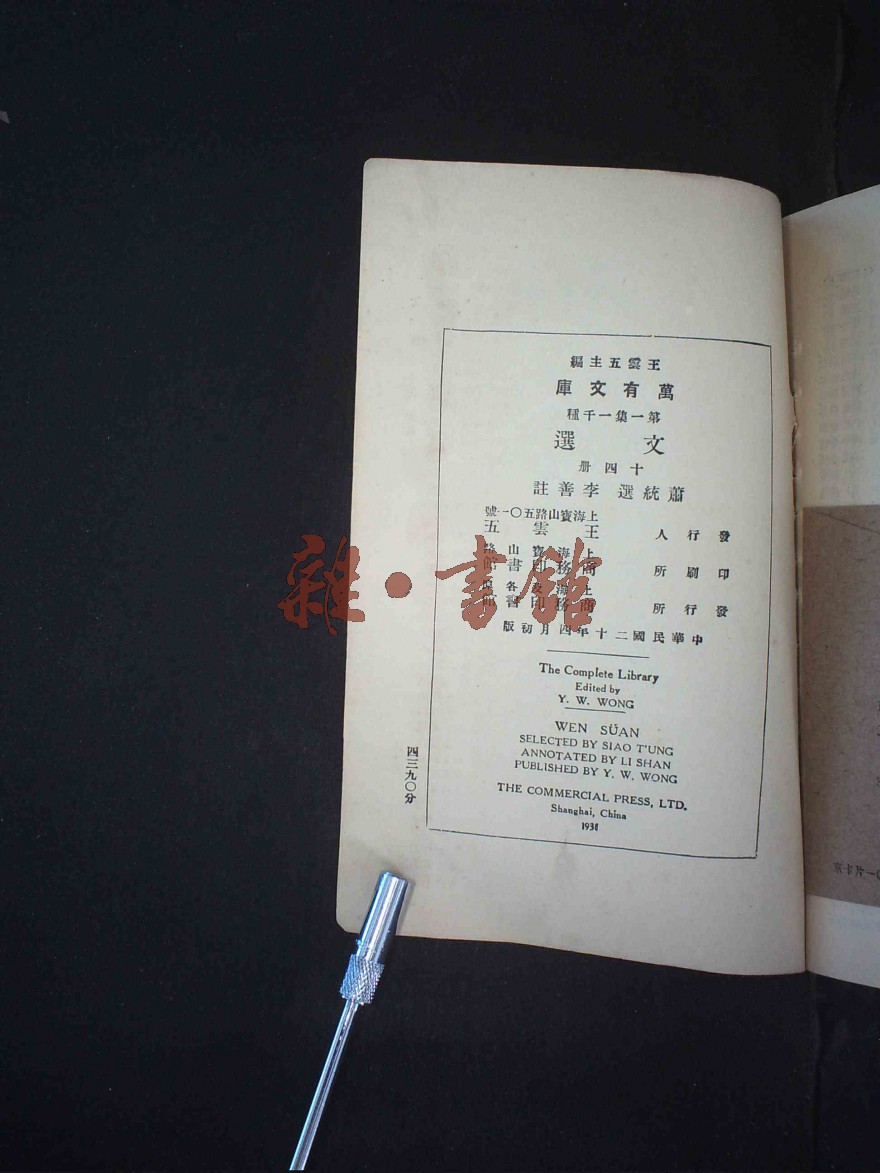 王雲五主編
萬有文庫
第一集一千種
文選
十四册
蕭統選 李善註
上海寶山路五〇一號
發行人 王雲五
上海寶山路
印刷所 商務印書館
上海及各埠
發行所 商務印書館
中華民國二十年四月初版
The Complete Library
Edited by
Y. W. WONG
WEN SÜAN
SELECTED BY SIAO T'UNG
ANNOTATED BY LI SHAN
PUBLISHED BY Y. W. WONG
THE COMMERCIAL PRESS, LTD.
Shanghai, China
1931
四三九〇分
雜·書館